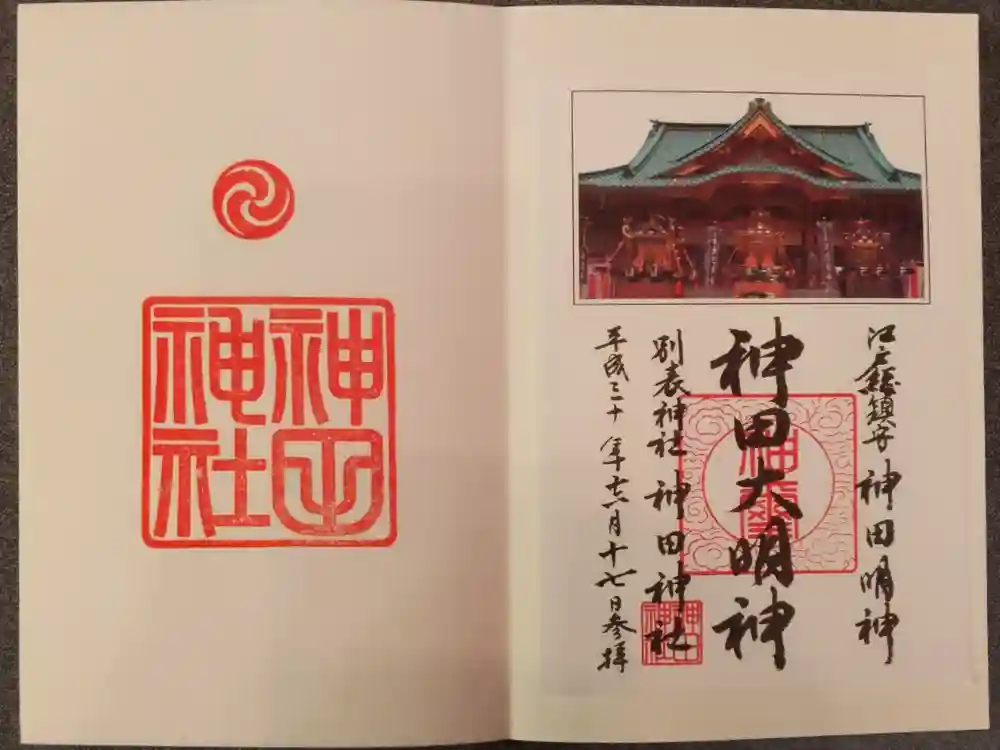 江戸総鎮守 神田明神
神田大明神
別表神社 神田神社
平成三十年六月十七日参拝
神田神社
神田神社